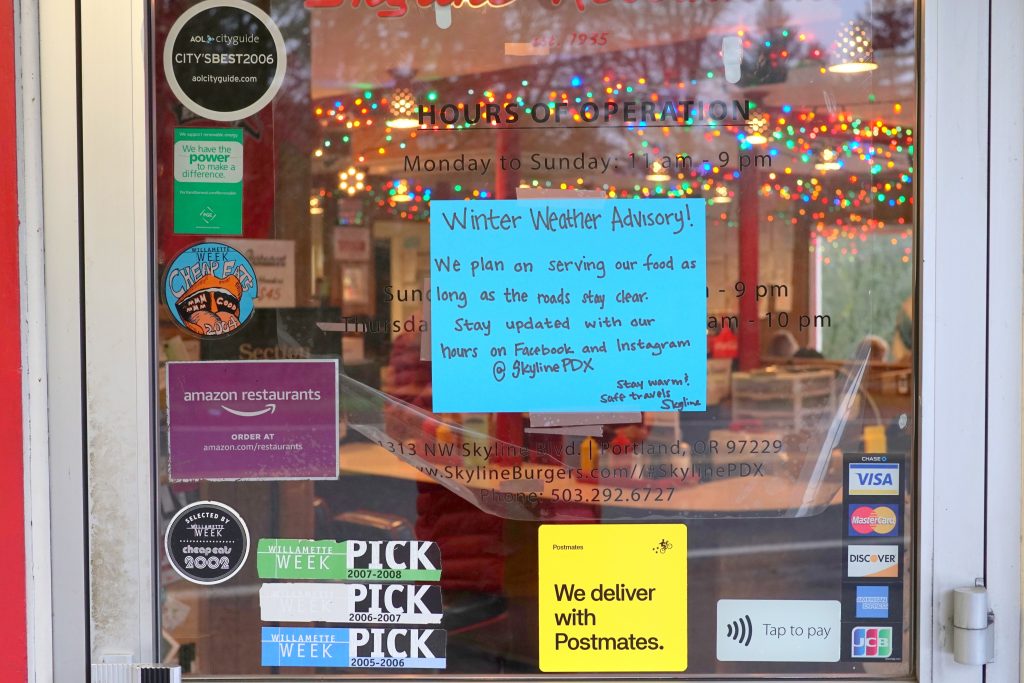 Skyline Restaurant
est. 1935
AOL cityguide
CITY'SBEST2006
aolcityguide.com
HOURS OF OPERATION
Monday to Sunday: 11 am - 9 pm
We support renewable energy.
We have the
power
to make a
difference.
PGE
Winter Weather Advisory!
We plan on serving our food as
long as the roads stay clear.
Stay updated with our
hours on Facebook and Instagram
@ SkylinePDX
Stay warm!
Safe travels
Skyline
Sun
- 9 pm
Thursda
am - 10 pm
WILLAMETTE
WEEK
CHEAP EATS
2004
amazon restaurants
ORDER AT
amazon.com/restaurants
313 NW Skyline Blvd. | Portland, OR 97229
www.SkylineBurgers.com//#SkylinePDX
Phone: 503.292.6727
SELECTED BY
WILLAMETTE
WEEK
cheap eats
2002
WILLAMETTE
WEEK
PICK
2007-2008
WILLAMETTE
WEEK
PICK
2006-2007
WILLAMETTE
WEEK
PICK
2005-2006
Postmates
We deliver
with
Postmates.
Tap to pay
CHASE
VISA
MasterCard
DISCOVER
AMERICAN
EXPRESS
JCB